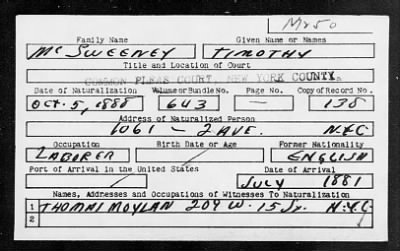 M250
Family Name Given Name or Names
McSWEENEY TIMOTHY
Title and Location of Court
COMMON PLEAS COURT, NEW YORK COUNTY
Date of Naturalization Volume or Bundle No. Page No. Copy of Record No.
OCT. 5, 1888 643 — 138
Address of Naturalized Person
1061 - 2 AVE. N.Y.C.
Occupation Birth Date or Age Former Nationality
LABORER ENGLISH
Port of Arrival in the United States Date of Arrival
JULY 1881
Names, Addresses and Occupations of Witnesses To Naturalization
1 THOMAS MOYLAN 209 W. 15 St. N.Y.C.
2